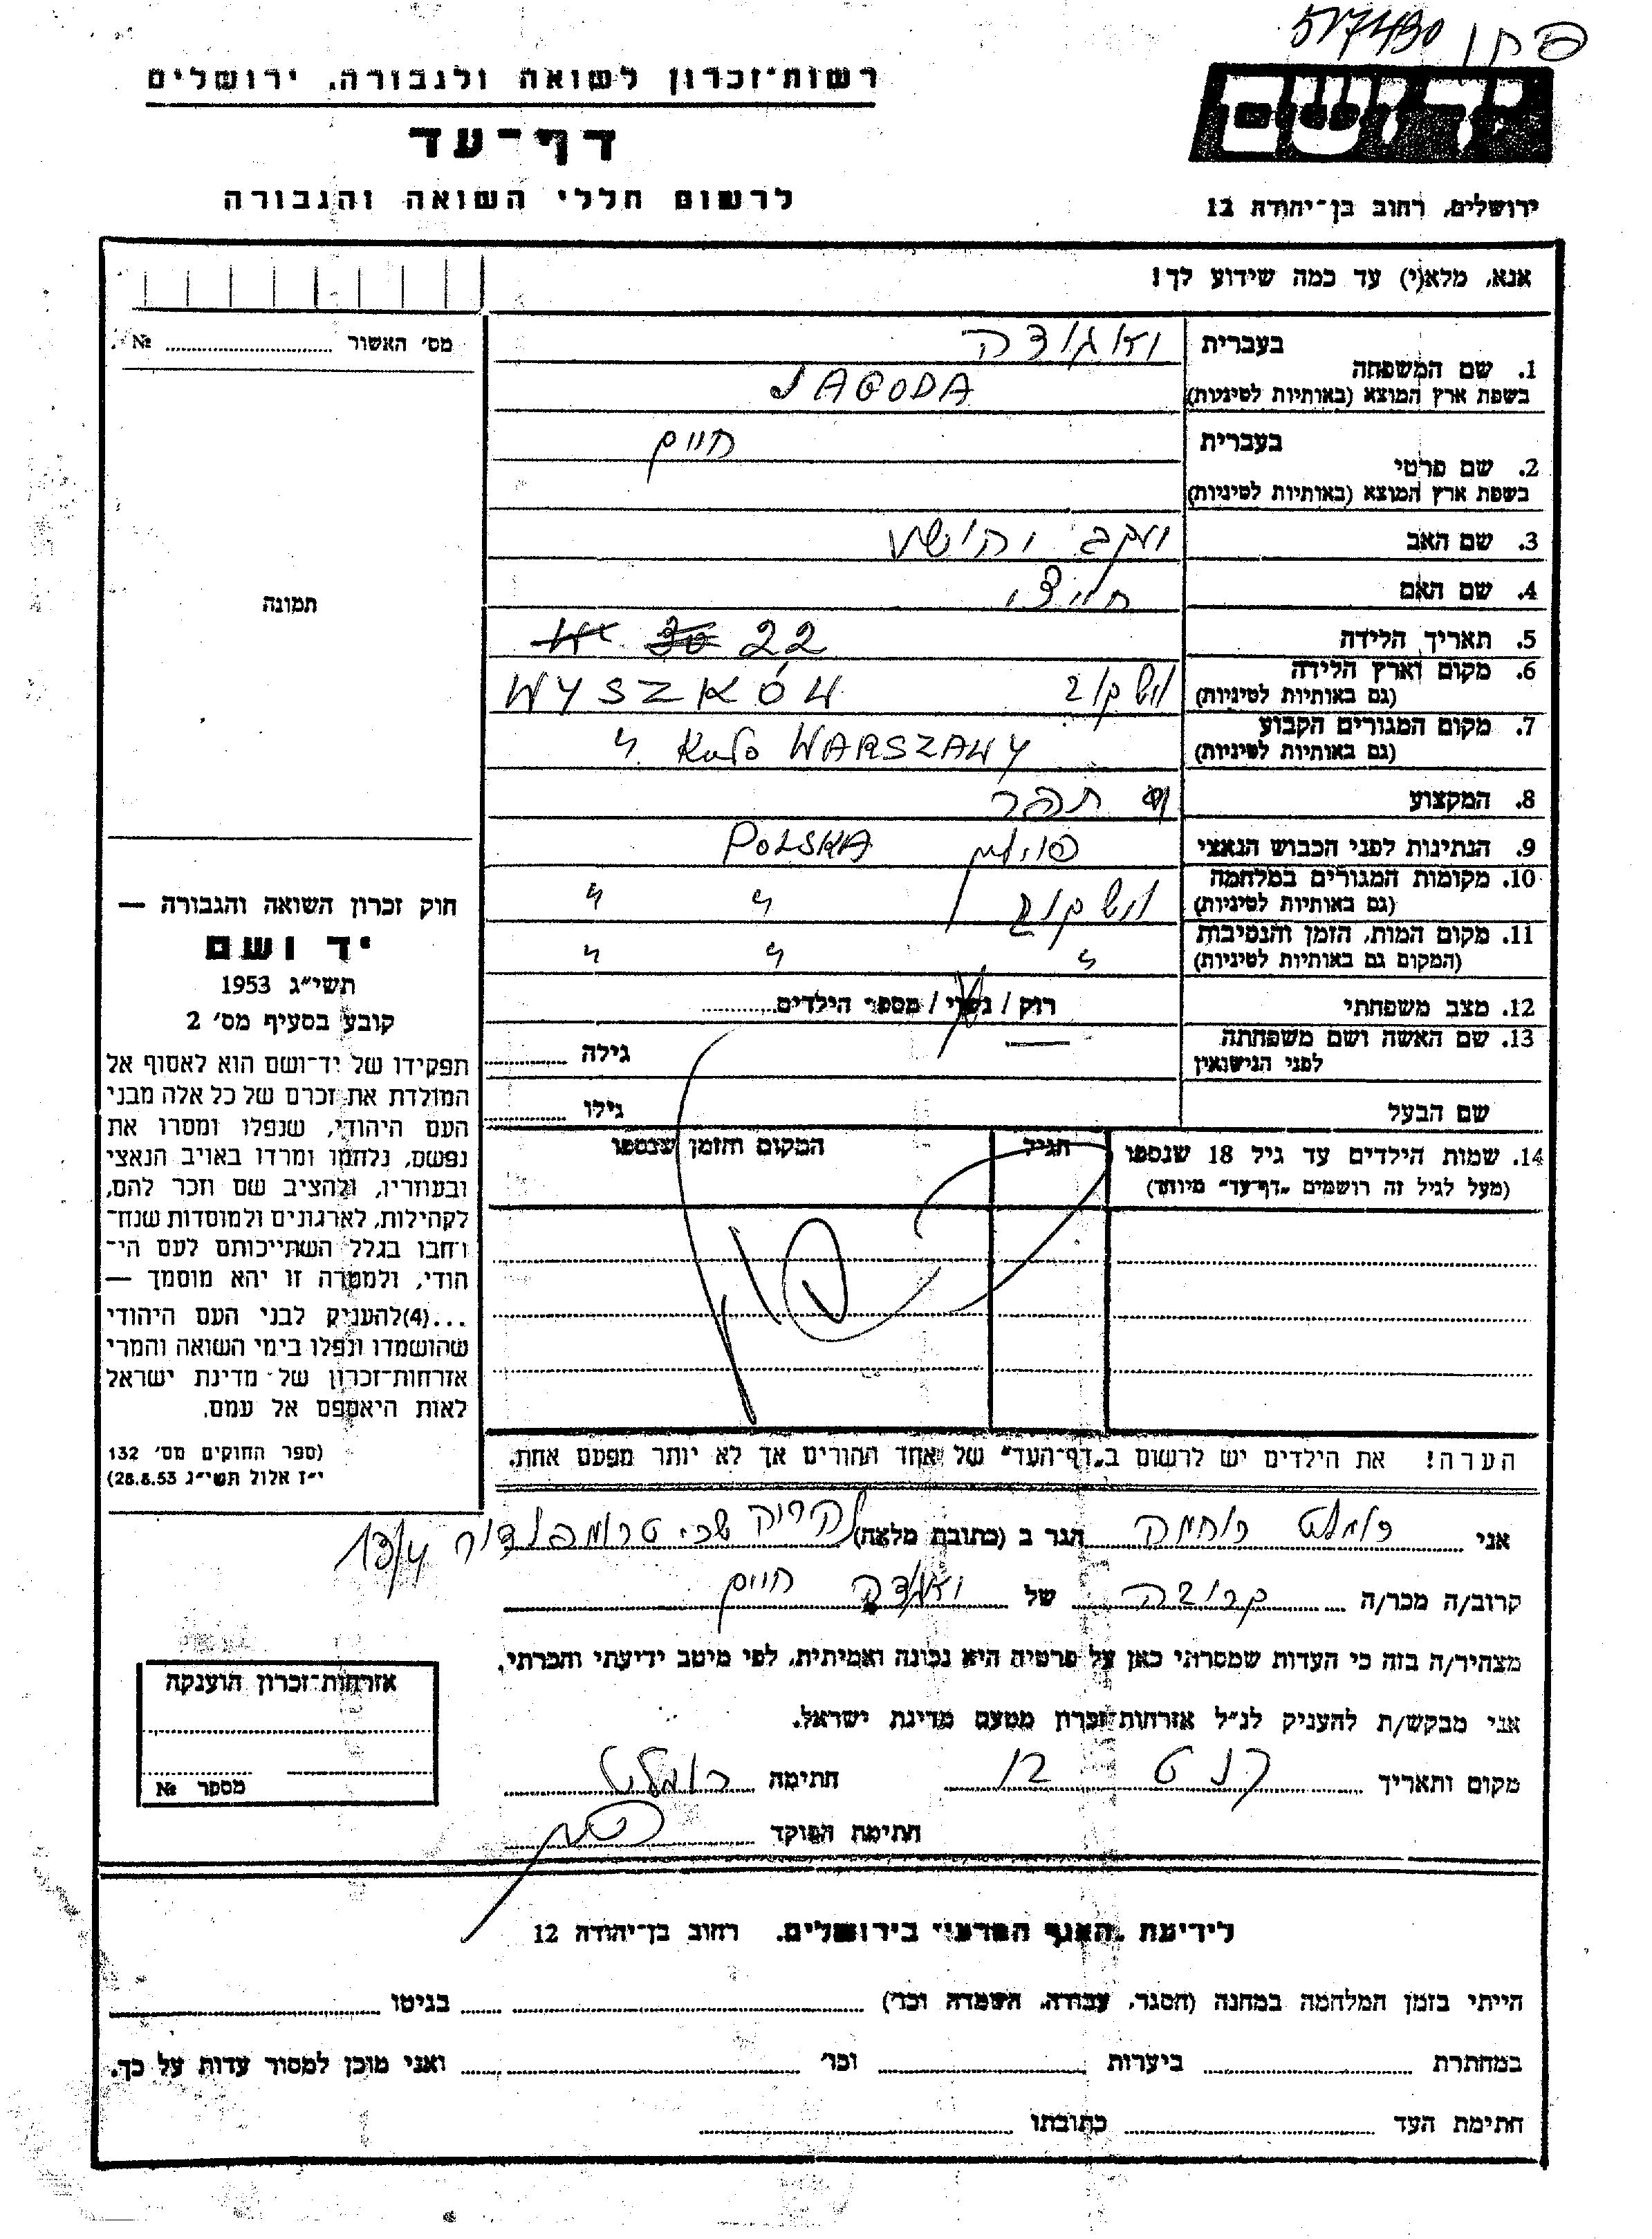 517490
רשות־זכרון לשואה ולגבורה, ירושלים
דף־עד
לרשום חללי השואה והגבורה
יד ושם
ירושלים, רחוב בן־יהודה 12
אנא, מלא(י) עד כמה שידוע לך!
מס׳ האשור № .
1. שם המשפחה
בעברית
בשפת ארץ המוצא (באותיות לטיניות) JAGODA
2. שם פרטי
בעברית חיים
בשפת ארץ המוצא (באותיות לטיניות)
3. שם האב יעקב יהושע
4. שם האם
5. תאריך הלידה 22
6. מקום וארץ הלידה WYSZKÓW
(גם באותיות לטיניות)
7. מקום המגורים הקבוע Koło WARSZAWY
(גם באותיות לטיניות)
8. המקצוע תפר
9. הנתינות לפני הכבוש הנאצי פולין POLSKA
10. מקומות המגורים במלחמה
(גם באותיות לטיניות)
11. מקום המות, הזמן והנסיבות " " "
(המקום גם באותיות לטיניות)
12. מצב משפחתי רוק / נשוי / מספר הילדים
13. שם האשה ושם משפחתה — גילה
לפני הנישואין
שם הבעל גילו
14. שמות הילדים עד גיל 18 שנספו הגיל המקום והזמן שנספו
(מעל לגיל זה רושמים „דף־עד" מיוחד)
תמונה
חוק זכרון השואה והגבורה —
יד ושם
תשי״ג 1953
קובע בסעיף מס׳ 2
תפקידו של יד־ושם הוא לאסוף אל
המולדת את זכרם של כל אלה מבני
העם היהודי, שנפלו ומסרו את
נפשם, נלחמו ומרדו באויב הנאצי
ובעוזריו, ולהציב שם וזכר להם,
לקהילות, לארגונים ולמוסדות שנח־
רחבו בגלל השתייכותם לעם הי־
הודי, ולמטרה זו יהא מוסמך —
...(4)להעניק לבני העם היהודי
שהושמדו ונפלו בימי השואה והמרי
אזרחות־זכרון של מדינת ישראל
לאות היאספם אל עמם.
(ספר החוקים מס׳ 132
י״ז אלול תשי״ג 28.8.53)
הערה! את הילדים יש לרשום ב„דף־העד" של אחד ההורים אך לא יותר מפעם אחת.
אני הגר ב (כתובת מלאה) טרומפלדור 13/4
קרוב/ה מכר/ה קרובה של יאגודה חיים
מצהיר/ה בזה כי העדות שמסרתי כאן על פרטיה היא נכונה ואמיתית, לפי מיטב ידיעתי והכרתי.
אני מבקש/ת להעניק לנ״ל אזרחות־זכרון מטעם מדינת ישראל.
מקום ותאריך חתימה
חתימת הפוקד
אזרחות־זכרון הוענקה
מספר №
לידיעת „האגף המדעי" בירושלים, רחוב בן־יהודה 12
הייתי בזמן המלחמה במחנה (הסגר, עבודה, השמדה וכו׳) בגיטו
במחתרת ביערות וכו׳ ואני מוכן למסור עדות על כך.
חתימת העד כתובתו